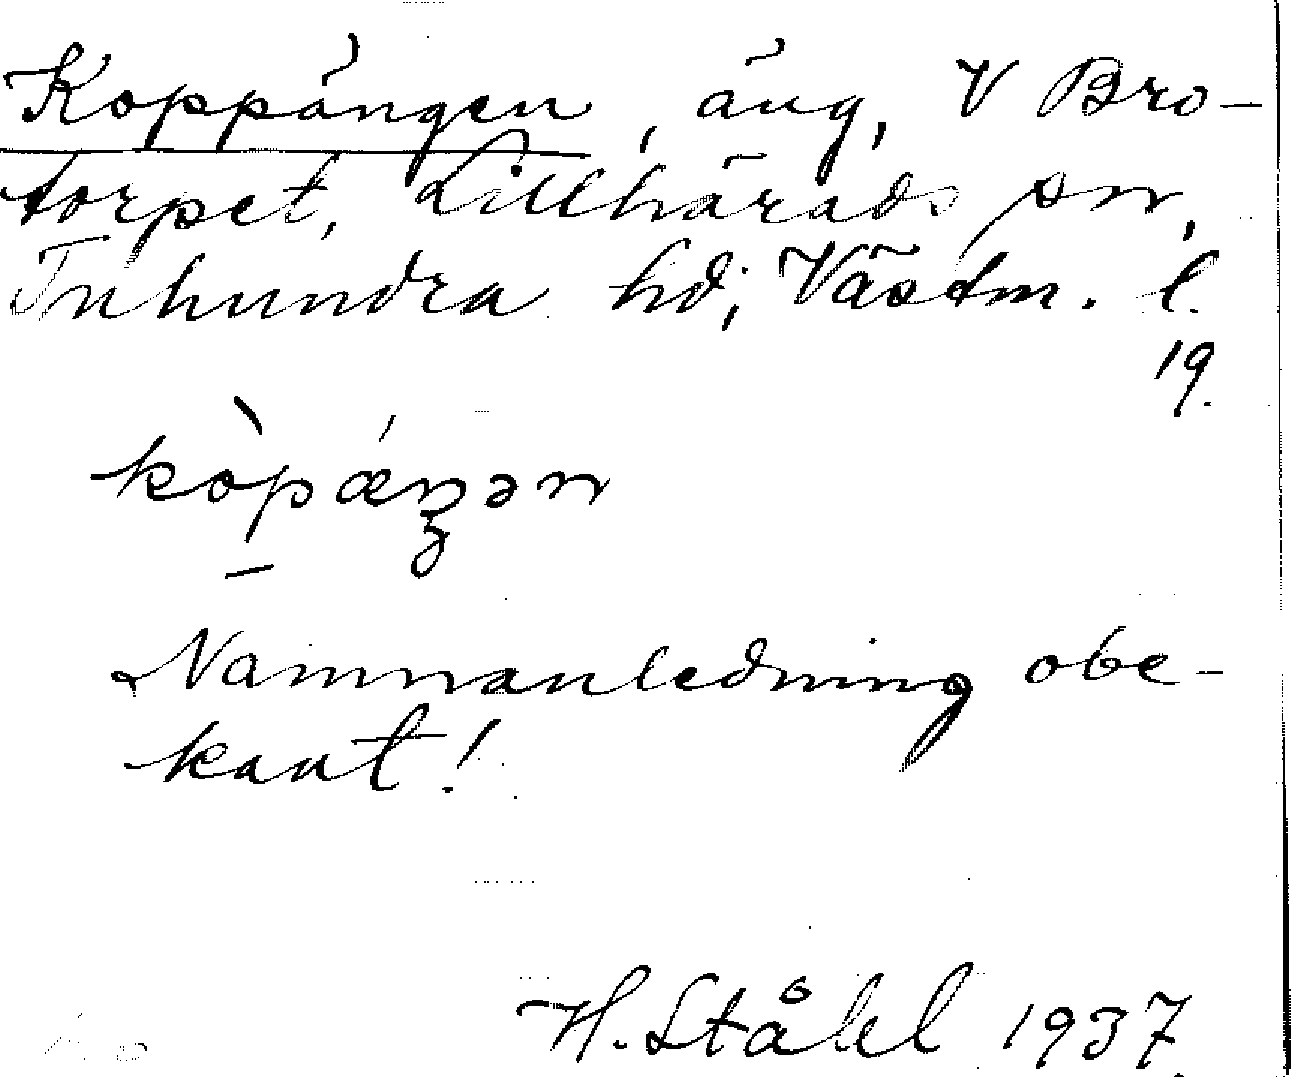 Koppängen, äng, V Bro-
torpet, Lillhärads sn,
Tuhundra hd, Västm. l.
19.
kòpǽŋən
Namnanledning obe-
kant!
H. Ståhl 1937.